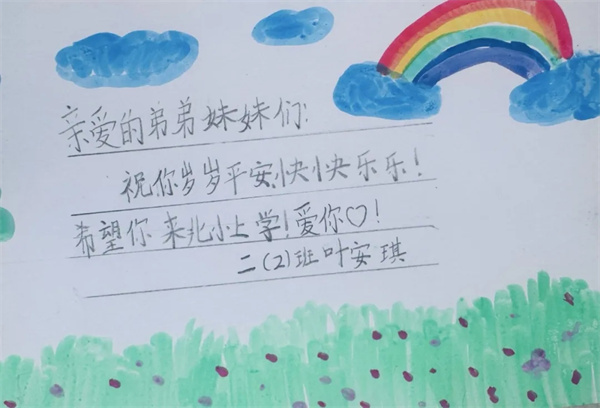 亲爱的弟弟妹妹们:
祝你岁岁平安,快快乐乐!
希望你来北小上学!爱你♡!
二(2)班叶安琪